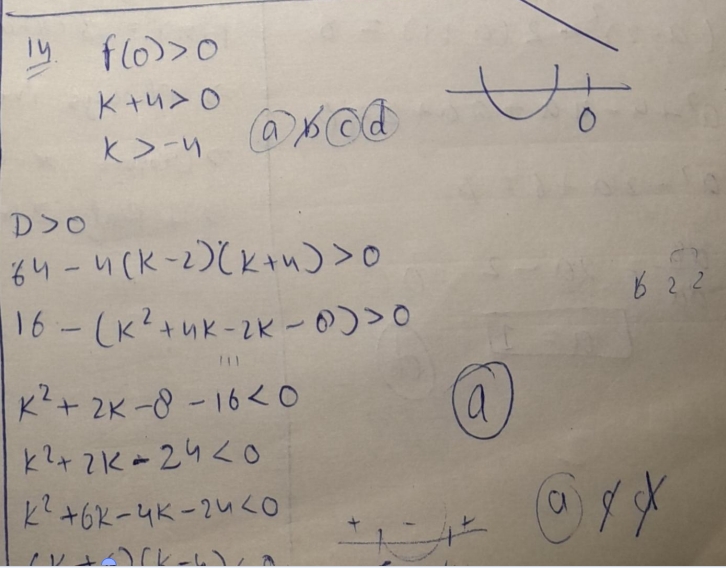 14. f(0)>0
k+4>0
k>-4
a b c d
0
D>0
64-4(k-2)(k+4)>0
16-(k²+4k-2k-8)>0
k²+2k-8-16<0
a
k²+2k-24<0
k²+6k-4k-24<0
+ - +
a